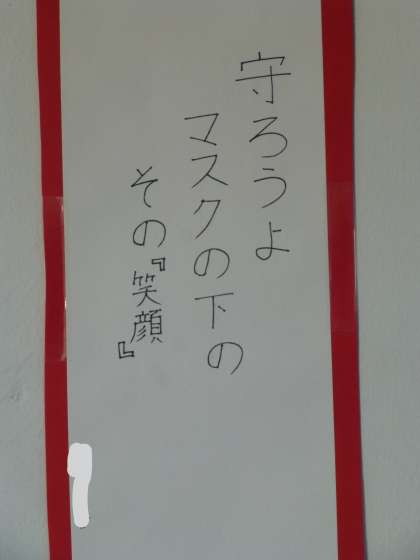 守ろうよ
マスクの下の
その『笑顔』